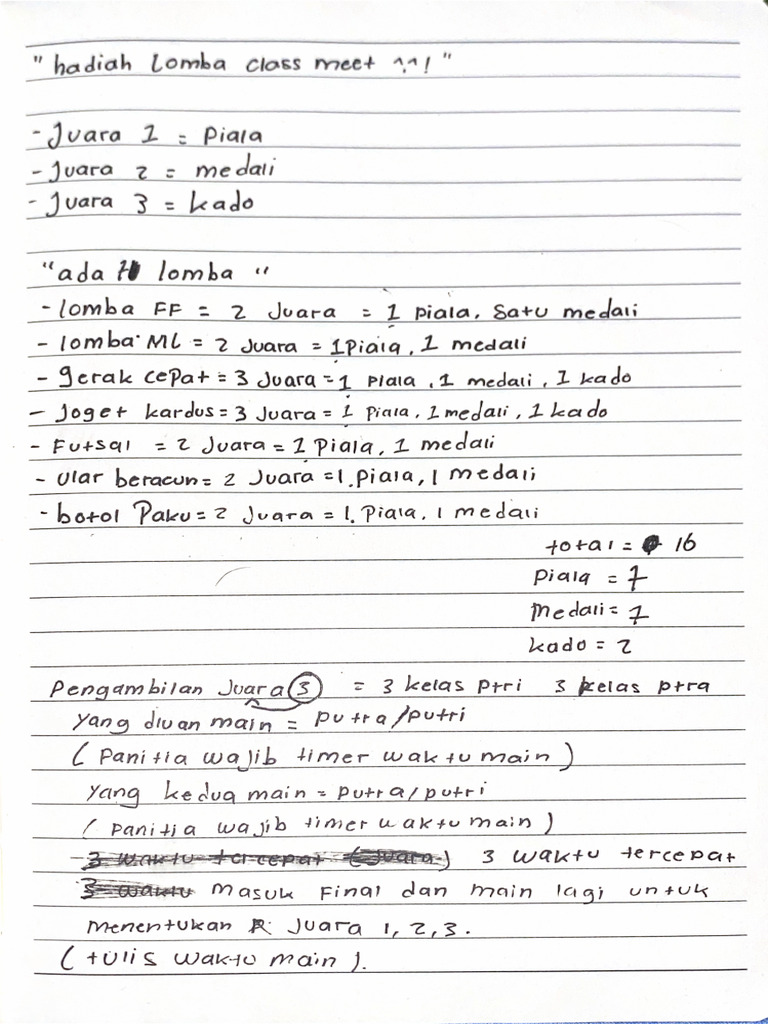 "hadiah Lomba class meet ^.^! "
- Juara 1 = Piala
- Juara 2 = medali
- Juara 3 = kado
"ada 7 lomba "
- lomba FF = 2 Juara = 1 Piala, Satu medali
- lomba ML = 2 Juara = 1 Piala, 1 medali
- gerak cepat = 3 Juara = 1 Piala, 1 medali, 1 kado
- Joget kardus = 3 Juara = 1 Piala, 1 medali, 1 kado
- Futsal = 2 Juara = 1 Piala, 1 medali
- ular beracun = 2 Juara = 1. Piala, 1 medali
- botol Paku = 2 Juara = 1. Piala, 1 medali
total = 16
Piala = 7
Medali = 7
kado = 2
Pengambilan Juara 3 = 3 kelas Ptri 3 kelas ptra
yang diuan main = putra/putri
( Panitia wajib timer waktu main )
yang kedua main = putra/putri
( Panitia wajib timer waktu main )
3 waktu tercepat (Juara) 3 waktu tercepat
3 waktu masuk Final dan main lagi untuk
menentukan Juara 1, 2, 3.
( tulis waktu main ).